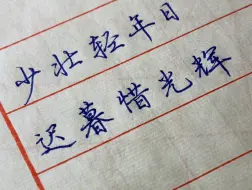 少壮轻年月
迟暮惜光辉